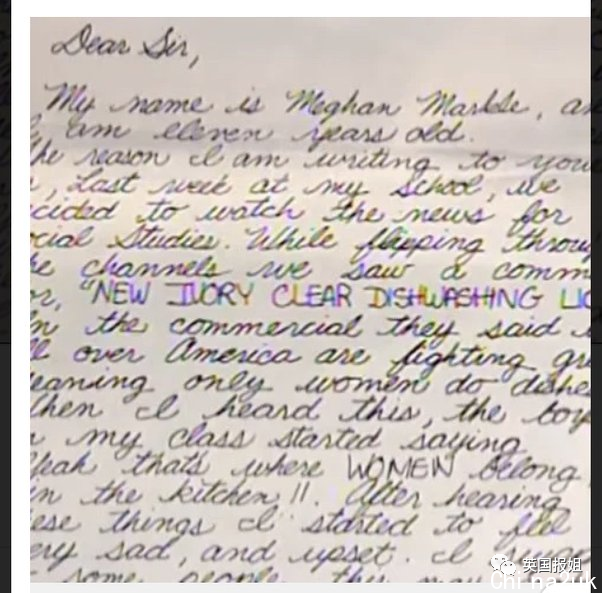 Dear Sir,
My name is Meghan Markle, an
I am eleven years old.
he reason I am writing to you
Last week at my school, we
cided to watch the news for
ocial Studies. While flipping throug
he channels we saw a comm
or, "NEW IVORY CLEAR DISHWASHING LI
In the commercial they said
ll over America are fighting gre
eaning only women do dishe
hen I heard this, the boy
n my class started saying
Yeah that's where WOMEN belong
in the kitchen!!. After hearing
ese things I started to feel
ery sad, and upset. I
some people the may
英国报姐
China2uk